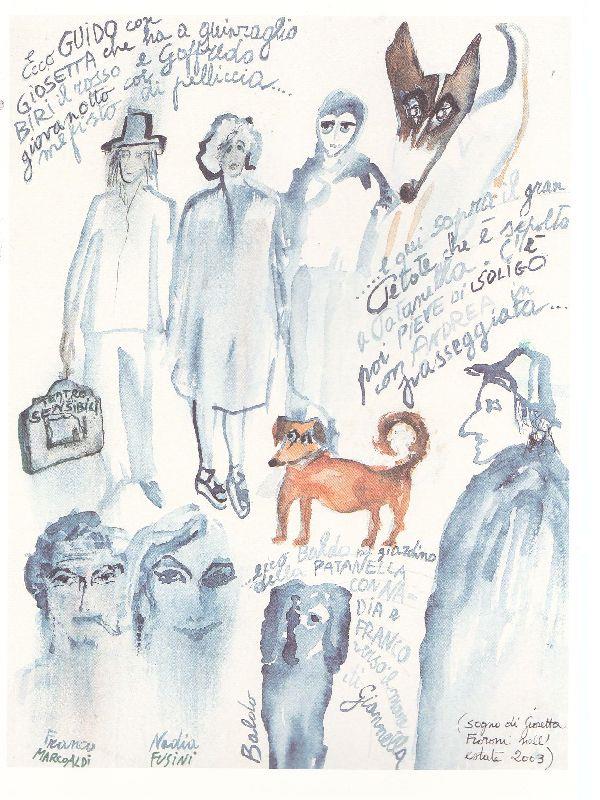 Ecco GUIDO con
GIOSETTA che ha a guinzaglio
BIRI il rosso e Goffredo
giovanotto col
mefisto di pelliccia....
.....e qui sopra il gran
Petote che è sepolto
a Patanella. C'è
poi PIEVE DI SOLIGO
con ANDREA in
passeggiata...
TEATRO
SENSIBILI
ecco Baldo in giardino
della PATANELLA
CON NA-
DIA e
FRANCO
verso il mare
di Giannella
Baldo
Franco
MARCOALDI
Nadia
FUSINI
(sogno di Giosetta
Fioroni nell'
estate 2003)